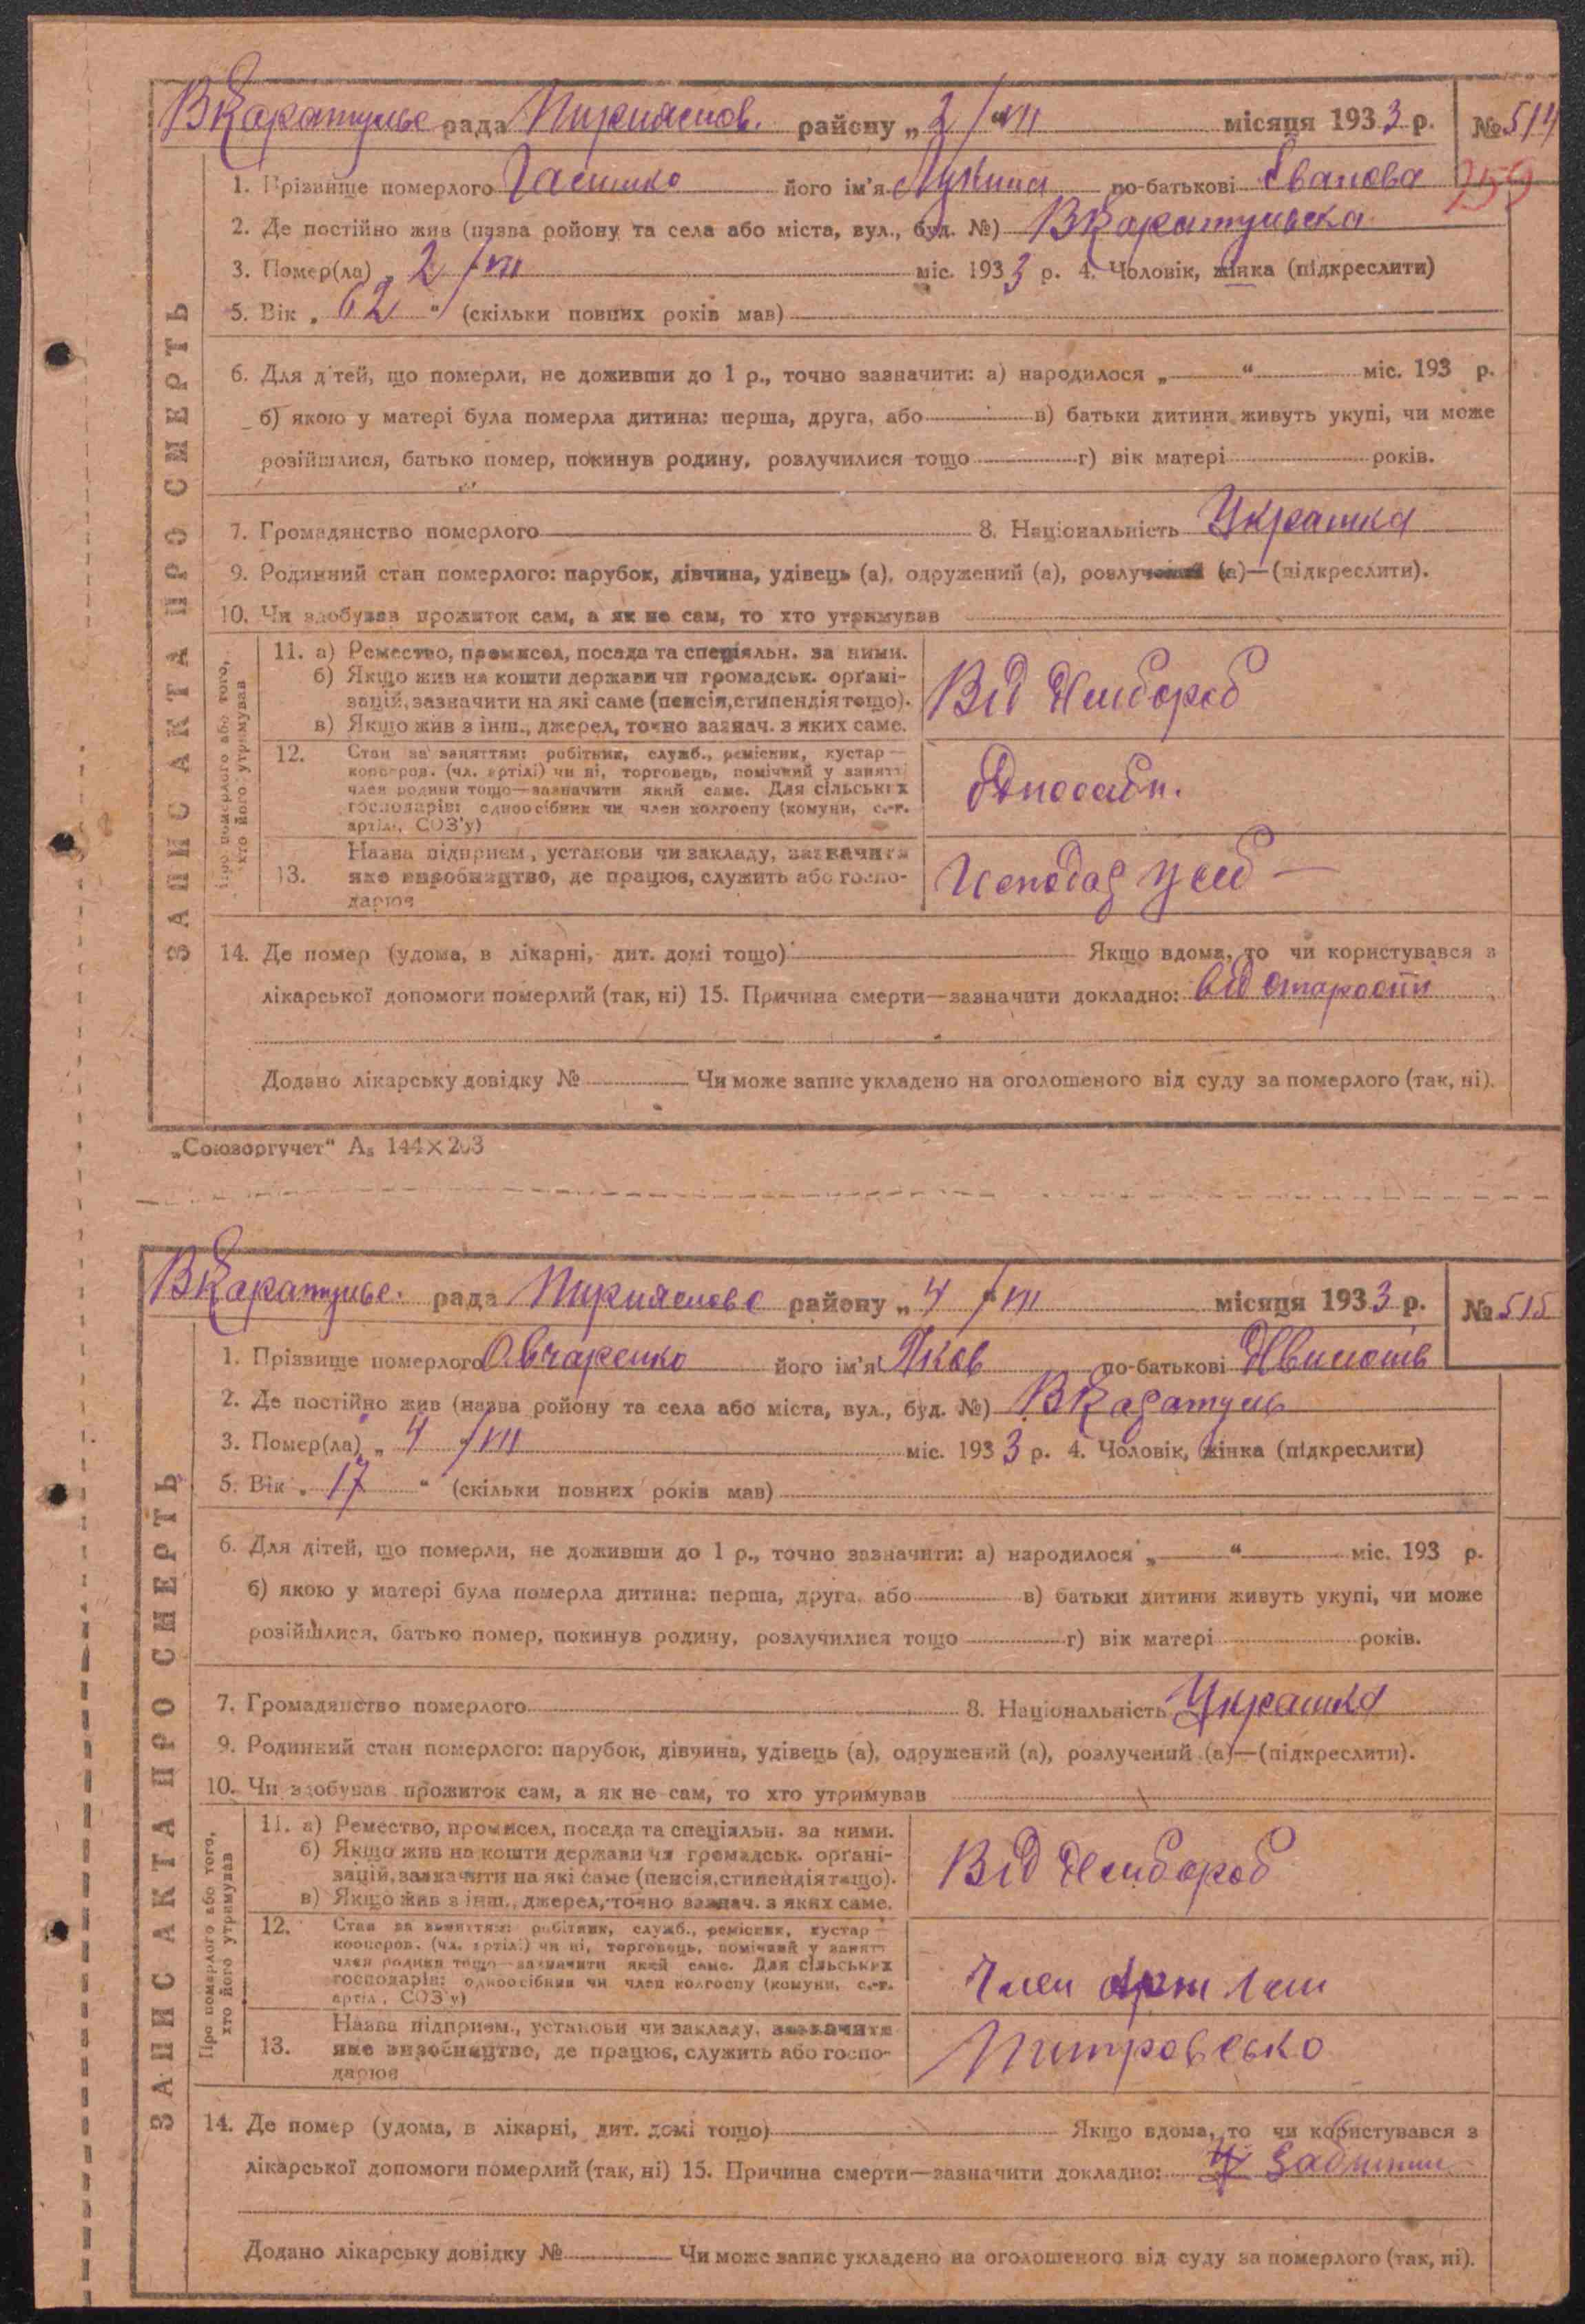 ВКаратульс рада Пирияслов. району „ 2 / VII місяця 1933 р. № 514
1. Прізвище померлого його ім'я по-батькові Іванова 159
2. Де постійно жив (назва ройону та села або міста, вул., буд. №) ВКаратульска
3. Помер(ла) „ 2 / VII міс. 1933 р. 4. Чоловік, жінка (підкреслити)
5. Вік „ 62 “ (скільки повних років мав)
6. Для дітей, що померли, не доживши до 1 р., точно зазначити: а) народилося „ “ міс. 193 р.
б) якою у матері була померла дитина: перша, друга, або в) батьки дитини живуть укупі, чи може
розійшлися, батько помер, покинув родину, розлучилися тощо г) вік матері років.
7. Громадянство померлого 8. Національність Украинка
9. Родинний стан померлого: парубок, дівчина, удівець (а), одружений (а), розлучений (а)—(підкреслити).
10. Чи здобував прожиток сам, а як не сам, то хто утримував
ЗАПИС АКТА ПРО СМЕРТЬ
Про померлого або того, хто його утримував
11. а) Ремество, промисел, посада та спеціяльн. за ними.
б) Якщо жив на кошти держави чи громадськ. органі-
зацій, зазначити на які саме (пенсія, стипендія тощо).
в) Якщо жив з інш., джерел, точно зазнач. з яких саме.
Від
12. Стан за заняттям: робітник, служб., ремісник, кустар —
кооперов. (чл. артілі) чи ні, торговець, помічний у занятті
член родини тощо—зазначити який саме. Для сільських
господарів: одноосібник чи член колгоспу (комуни, с.-г.
артіл., СОЗ'у)
13. Назва підприєм., установи чи закладу, зазначити
яке виробництво, де працює, служить або госпо-
дарює
14. Де помер (удома, в лікарні, дит. домі тощо) Якщо вдома, то чи користувався з
лікарської допомоги померлий (так, ні) 15. Причина смерти—зазначити докладно: від старости
Додано лікарську довідку № Чи може запис укладено на оголошеного від суду за померлого (так, ні).
„Союзоргучет“ А₅ 144×203
ВКаратульс. рада Пириясловс району „ 4 / VII місяця 1933 р. № 515
1. Прізвище померлого Овчаренко його ім'я Яков по-батькові
2. Де постійно жив (назва ройону та села або міста, вул., буд. №) ВКаратуль
3. Помер(ла) „ 4 / VII міс. 1933 р. 4. Чоловік, жінка (підкреслити)
5. Вік „ 17 “ (скільки повних років мав)
6. Для дітей, що померли, не доживши до 1 р., точно зазначити: а) народилося „ “ міс. 193 р.
б) якою у матері була померла дитина: перша, друга, або в) батьки дитини живуть укупі, чи може
розійшлися, батько помер, покинув родину, розлучилися тощо г) вік матері років.
7. Громадянство померлого 8. Національність Украинка
9. Родинний стан померлого: парубок, дівчина, удівець (а), одружений (а), розлучений (а)—(підкреслити).
10. Чи здобував прожиток сам, а як не сам, то хто утримував
ЗАПИС АКТА ПРО СМЕРТЬ
Про померлого або того, хто його утримував
11. а) Ремество, промисел, посада та спеціяльн. за ними.
б) Якщо жив на кошти держави чи громадськ. органі-
зацій, зазначити на які саме (пенсія, стипендія тощо).
в) Якщо жив з інш., джерел, точно зазнач. з яких саме.
Від
12. Стан за заняттям: робітник, служб., ремісник, кустар —
кооперов. (чл. артілі) чи ні, торговець, помічний у занятті
член родини тощо—зазначити який саме. Для сільських
господарів: одноосібник чи член колгоспу (комуни, с.-г.
артіл., СОЗ'у)
Член
13. Назва підприєм., установи чи закладу, зазначити
яке виробництво, де працює, служить або госпо-
дарює
14. Де помер (удома, в лікарні, дит. домі тощо) Якщо вдома, то чи користувався з
лікарської допомоги померлий (так, ні) 15. Причина смерти—зазначити докладно:
Додано лікарську довідку № Чи може запис укладено на оголошеного від суду за померлого (так, ні).